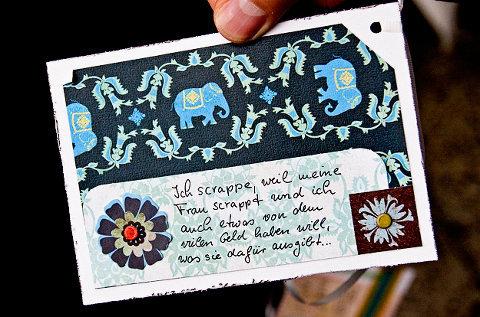 Ich scrappe, weil meine
Frau scrappt und ich
auch etwas von dem
vielen Geld haben will,
was sie dafür ausgibt...